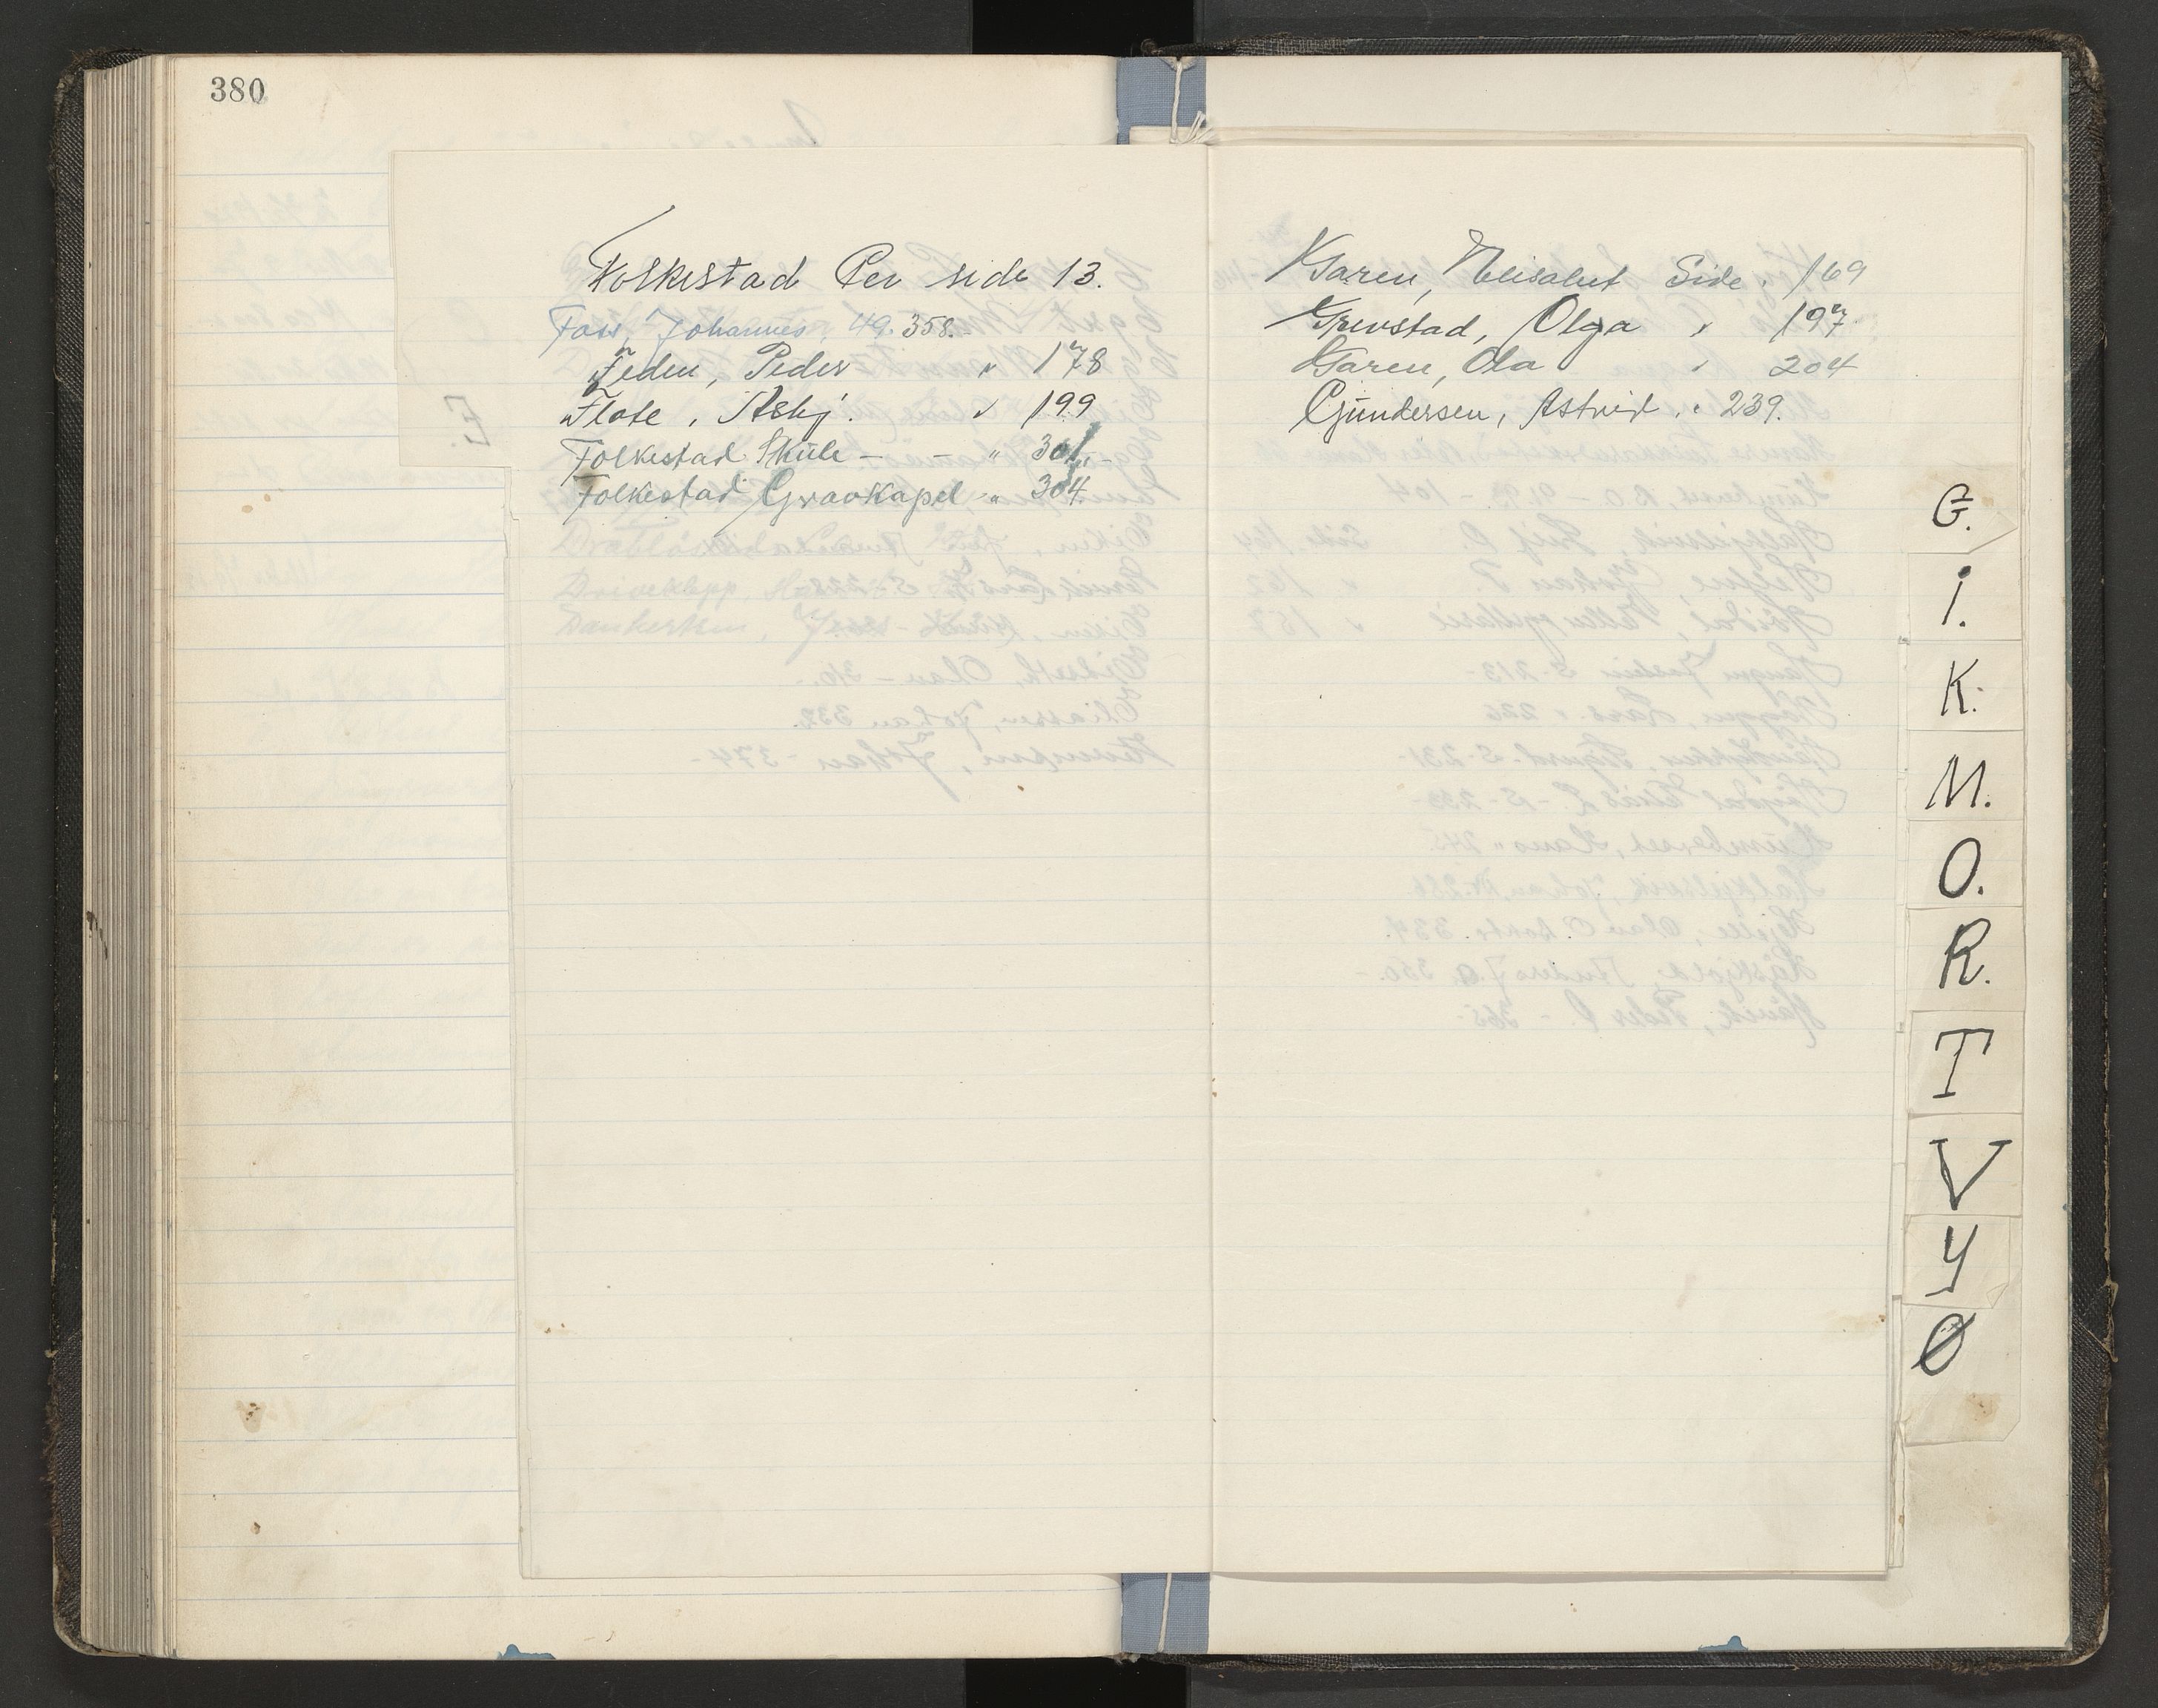 380
Folkestad Per side 13.
Foss, Johannes, 49. 358.-
Feden, Peder " 178
Flote, Asbj. " 199
Folkestad Skule - - " 301.-
Folkestad Gravkapel - " 304.
Garen, Elisabet Side. 169
Grevstad, Olga " 197
Garen, Ola " 204
Gundersen, Astrid. " 239.
G.
I.
K.
M.
O.
R.
T
V
Y
Ø